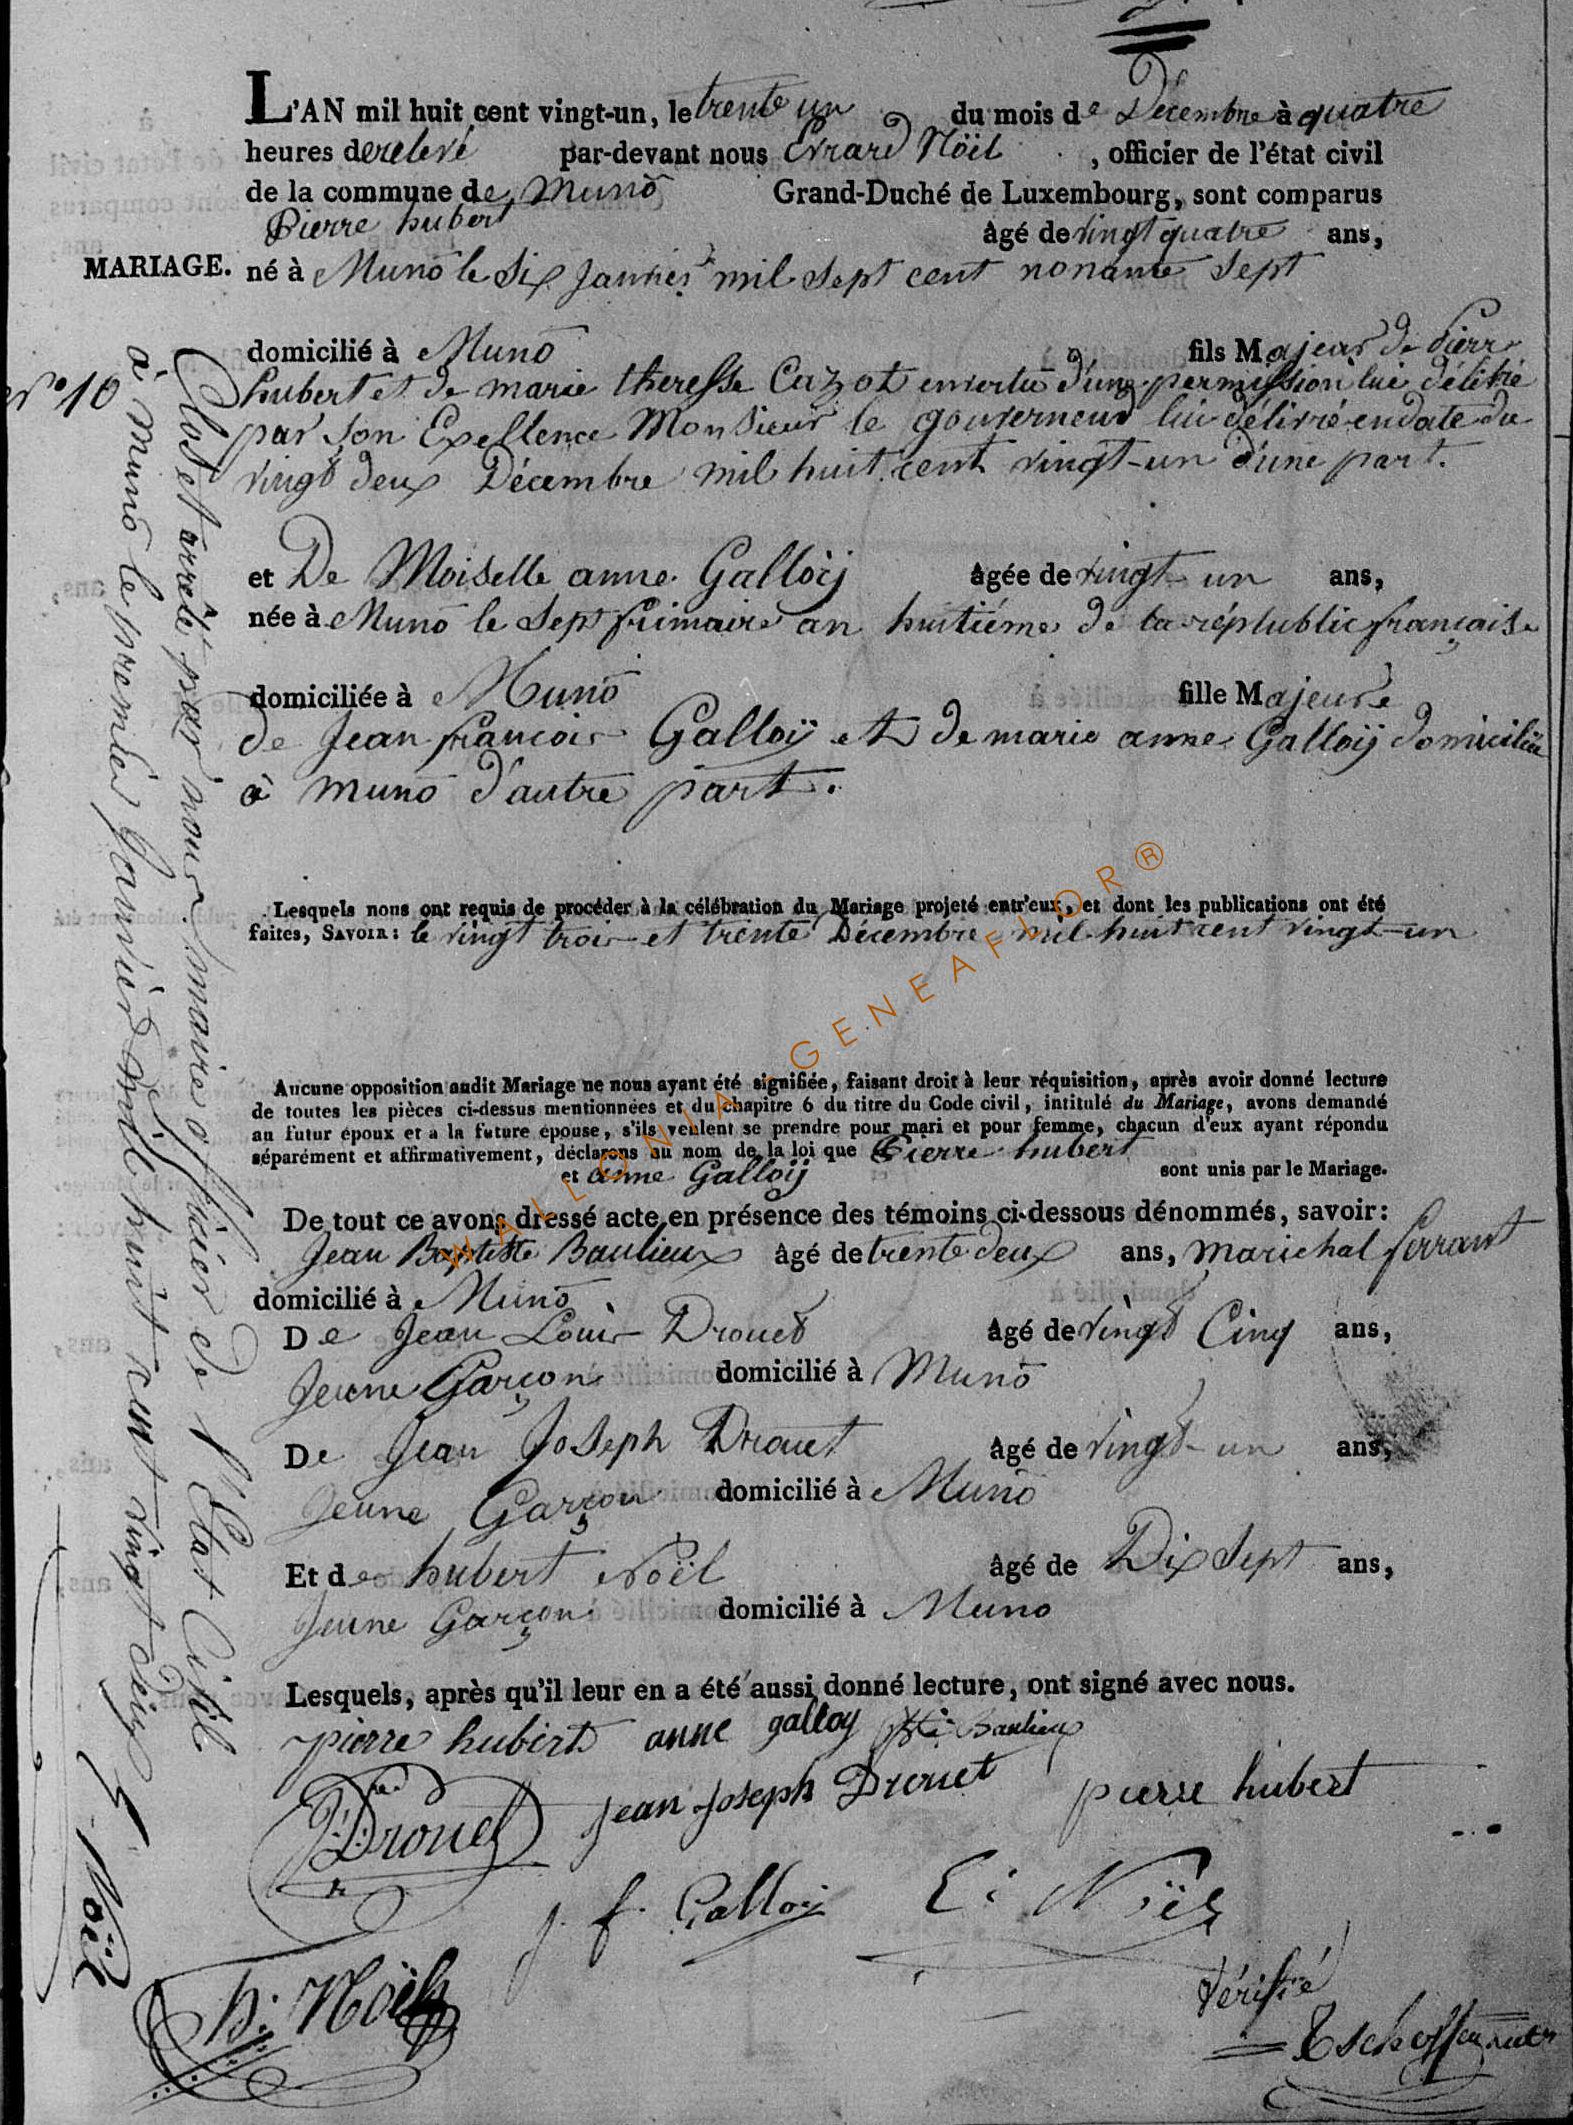 L'AN mil huit cent vingt-un, le trente un du mois de Décembre à quatre
heures de relevé par-devant nous Evrard Nöel, officier de l'état civil
de la commune de Muno Grand-Duché de Luxembourg, sont comparus
Pierre hubert âgé de vingt quatre ans,
MARIAGE.
né à Muno le Six Janvier mil Sept cent nonante Sept
N.° 10
domicilié à Muno fils Majeur de Pierre
hubert et de marie theresse Cazot en vertu d'une permission lui délivré
par Son Exellence Monsieur le gouverneur lui délivré en date du
vingt deux Décembre mil huit cent vingt-un d'une part.
et De Moiselle anne Galloÿ âgée de vingt un ans,
née à Muno le Sept frimaire an huitiéme de la républic française
domiciliée à Muno fille Majeure
de Jean françois Galloÿ et de marie anne Galloÿ domiciliée
à muno d'autre part.
Lesquels nous ont requis de procéder à la célébration du Mariage projeté entr'eux, et dont les publications ont été
faites, SAVOIR: le vingt trois et trente Décembre mil huit cent vingt-un
Aucune opposition audit Mariage ne nous ayant été signifiée, faisant droit à leur réquisition, après avoir donné lecture
de toutes les pièces ci-dessus mentionnées et du chapitre 6 du titre du Code civil, intitulé du Mariage, avons demandé
au futur époux et à la future épouse, s'ils veulent se prendre pour mari et pour femme, chacun d'eux ayant répondu
séparément et affirmativement, déclarons au nom de la loi que Pierre hubert
et anne Galloÿ sont unis par le Mariage.
De tout ce avons dressé acte en présence des témoins ci-dessous dénommés, savoir:
Jean Baptiste Baulieux âgé de trente deux ans, marichal ferrant
domicilié à Muno
De Jean Louis Drouet âgé de vingt Cinq ans,
Jeune Garçon domicilié à Muno
De Jean Joseph Drouet âgé de vingt-un ans,
Jeune Garçon domicilié à Muno
Et de hubert Noël âgé de Dix Sept ans,
Jeune Garçon domicilié à Muno
Lesquels, après qu'il leur en a été aussi donné lecture, ont signé avec nous.
pierre hubert anne galloy Bte Baulieux
Drouet Jean Joseph Drouet pierre hubert
j. f. Galloy E: Nöel
h: Noël
Vérifié
Clos et arrêté par nous maire officier de l'Etat Civil
à muno le premier Janvier mil huit cent vingt deux
E Noël
WALLONIA-GENEAFLOR®